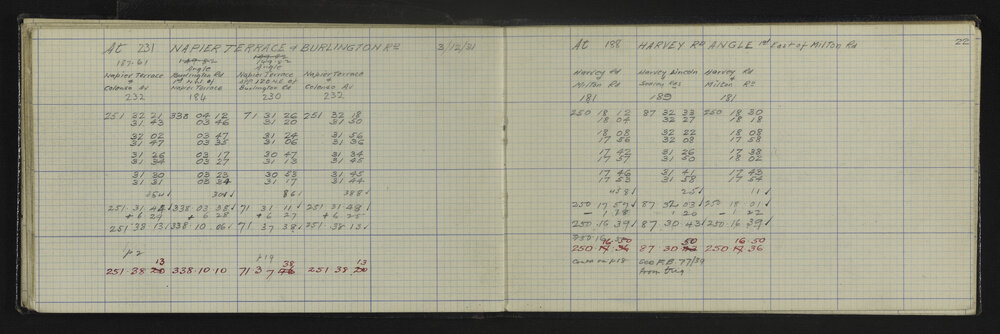 At 231 NAPIER TERRACE & BURLINGTON Rd 3/12/31
187.61 149.82
Angle Angle
Napier Terrace Burlington Rd Napier Terrace Napier Terrace
& 1st N.W. of & 
Colenso Av Napier Terrace Burlington Rd Colenso Av
232 184 230 232
251 32 21 338 04 12 71 31 26 251 32 18
31 43 03 46 31 20 31 50
32 02 03 47 31 24 31 56
31 47 03 35 31 06 31 36
31 26 03 17 30 47 31 34
31 34 03 27 31 13 31 45
31 30 03 23 30 58 31 45
31 31 03 34 31 17 31 44
354 301 86 388
251.31.44 338.03.38 71 31 11 251.31.49
+ 6 29 + 6 28 + 6 27 + 6 25
251 38 13 338 10.06 71 37 38 251.38.13
p2 p19
13 38 13
251.38 20 338.10.10 71 37 46 251 38 20
22
At 188 HARVEY RD ANGLE 1st East of Milton Rd
Harvey Rd Harvey Lincoln Harvey Rd
& &
Milton Rd Milton Rd
181 189 181
250 18 12 87 32 33 250 18 30
18 04 32 27 18 18
18 08 32 22 18 08
17 56 32 08 17 58
17 42 31 26 17 38
17 57 31 50 18 02
17 46 31 41 17 43
17 53 31 58 17 54
458 25 11
250 17 57 87 32 03 250.18.01
- 1 18 1 20 - 1 22
250.16 39 87.30.43 250.16 39
250.16
16 50 50 16.50
250 36 87 30 250 36
on p18 660 F.B. 77/39
from